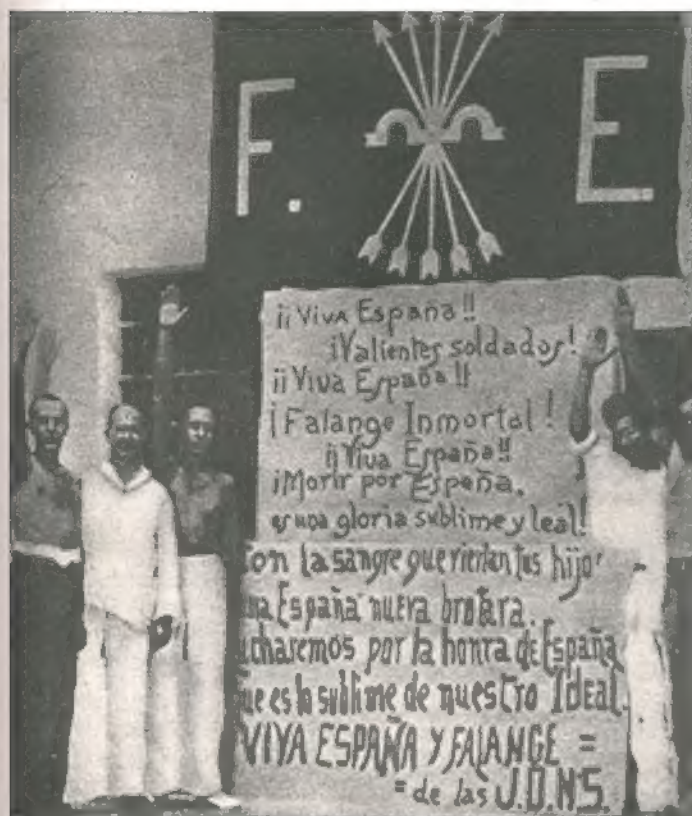 F. E
¡¡VIVA España!!
¡Valientes soldados!
¡¡VIVA España!!
¡Falange Inmortal!
¡¡Viva España!!
¡Morir por España,
es una gloria sublime y leal!
Con la sangre que viertan tus hijo
una España nueva brotara.
ucharemos por la honra de España
que es lo sublime de nuestro Ideal.
VIVA ESPAÑA Y FALANGE =
= de las J.O.N.S.